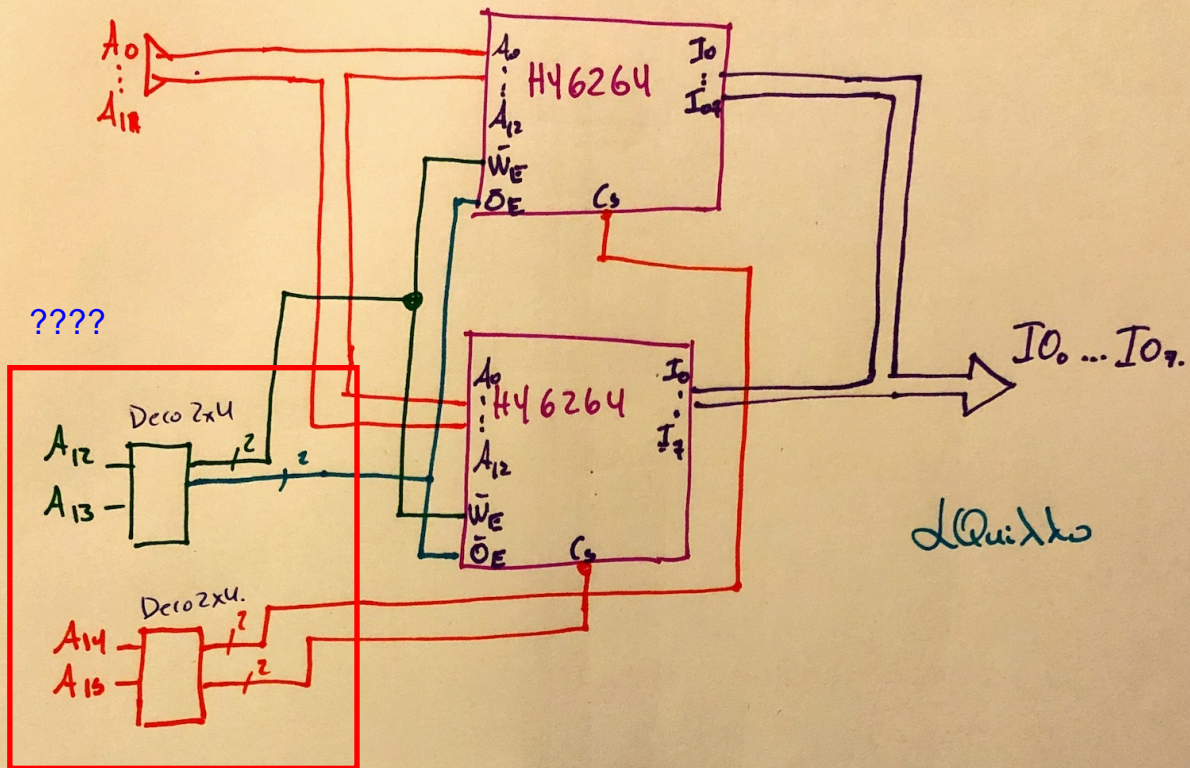 A0
⋮
A12
A0
⋮
A12
W̄E
ŌE
HY6264
I0
⋮
I07
Cs
????
A0
⋮
A12
W̄E
ŌE
HY6264
I0
⋮
I7
Cs
IO0 ... IO7.
Deco 2x4
A12
A13
2
2
Deco 2x4.
A14
A15
2
2